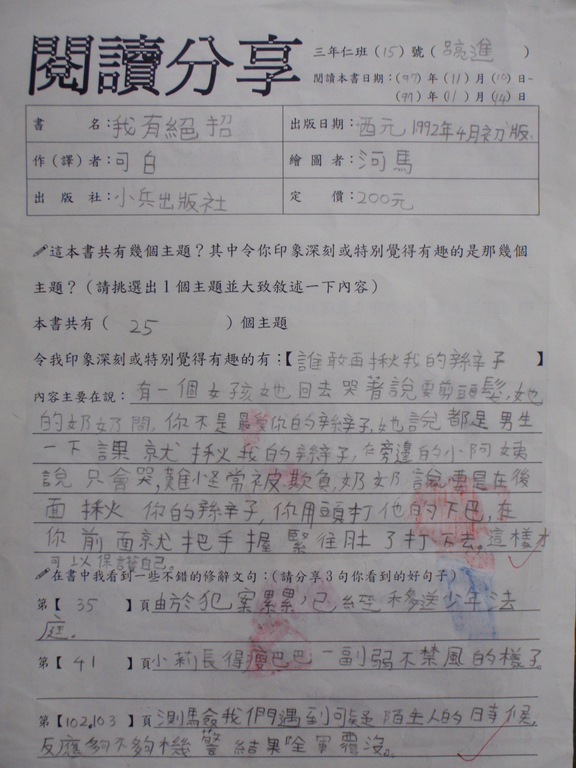 閱讀分享
三年仁班(15)號(呂亮進)
閱讀本書日期:(97)年(11)月(10)日~
(97)年(11)月(14)日
書名:我有絕招 出版日期:西元1992年4月初版.
作(譯)者:可白 繪圖者:河馬
出版社:小兵出版社 定價:200元
這本書共有幾個主題?其中令你印象深刻或特別覺得有趣的是那幾個
主題?(請挑選出1個主題並大致敘述一下內容)
本書共有(25)個主題
令我印象深刻或特別覺得有趣的有:【誰敢再揪我的辮子】
內容主要在說:有一個女孩她回去哭著說要剪頭髮,她
的奶奶問,你不是最愛你的辮子,她說都是男生
一下課就揪我的辮子,在旁邊的小阿姨
說只會哭,難怪常被欺負,奶奶說要是在後
面揪你的辮子,你用頭打他的下巴,在
你前面就把手握緊往肚子打下去。這樣才
可以保護自己。
在書中我看到一些不錯的修辭文句:(請分享3句你看到的好句子)
第【35】頁由於犯案累累,已經移送少年法
庭.
第【41】頁小莉長得瘦巴巴一副弱不禁風的樣子。
第【102,103】頁測驗我們遇到可疑陌生人的時候,
反應夠不夠機警 結果『全軍覆沒。